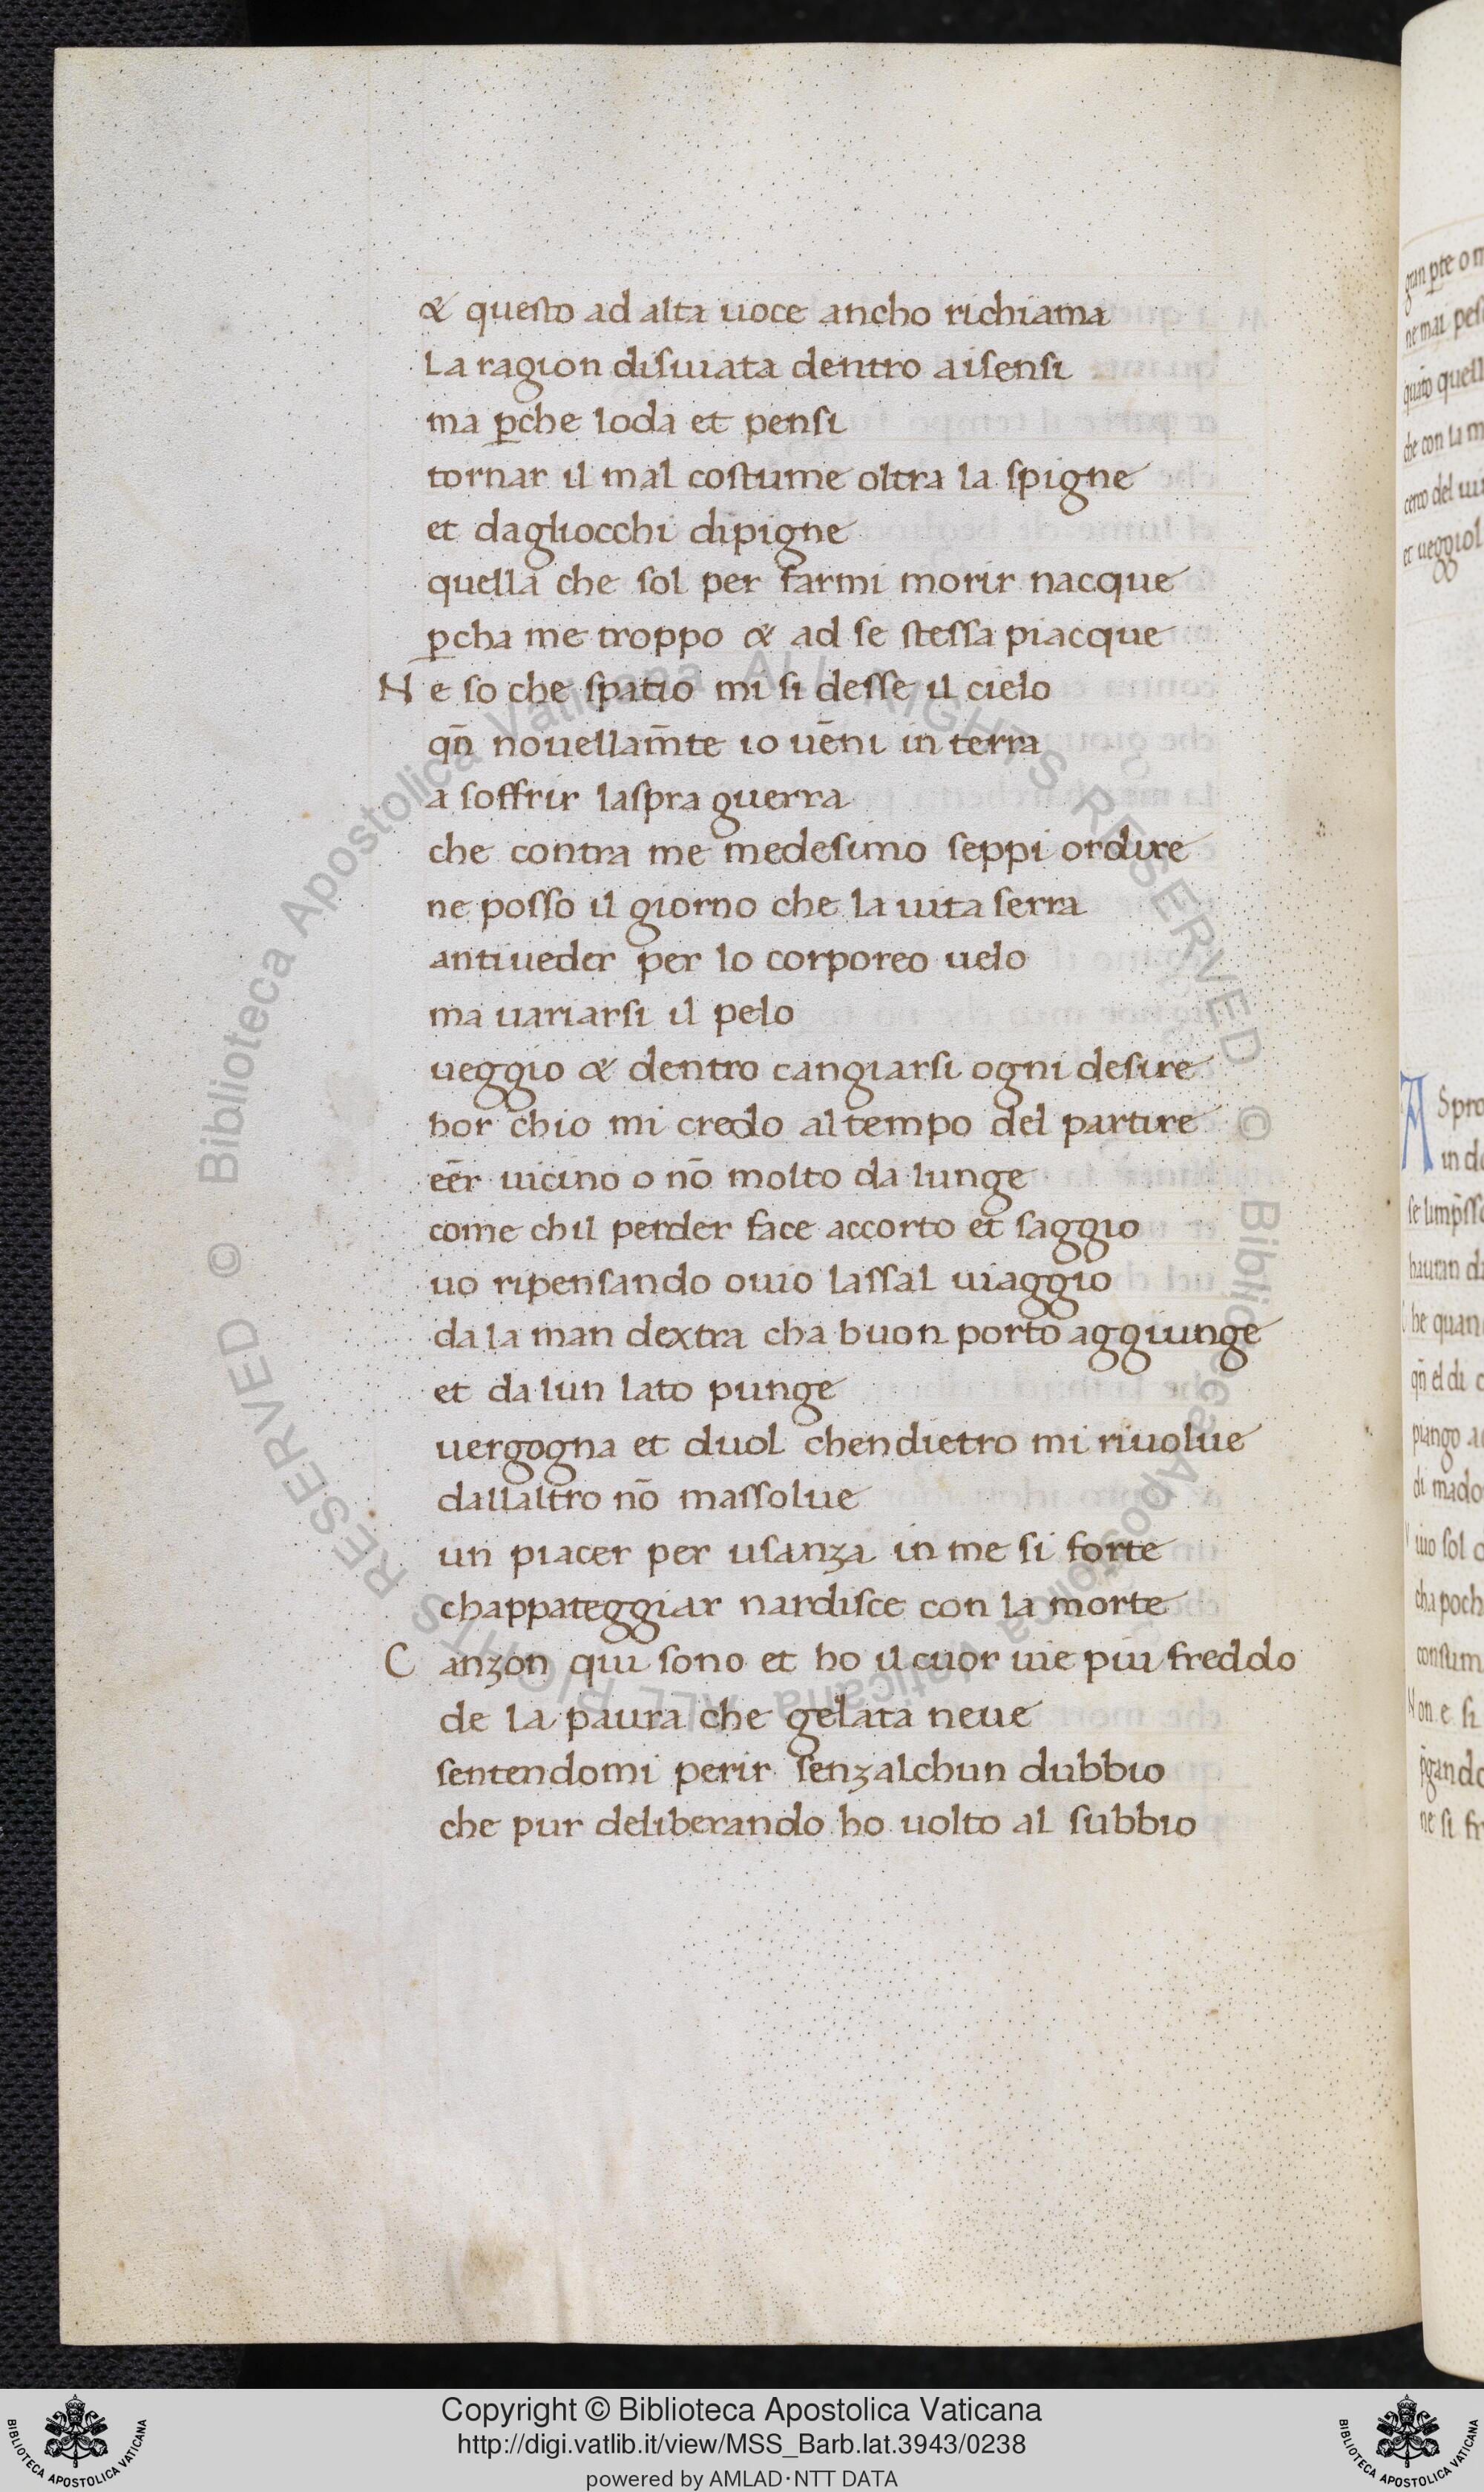 & questo ad alta uoce ancho richiama
La ragion disuiata dentro aisensi
ma ꝑche loda et pensi
tornar il mal costume oltra la spigne
et dagliocchi dipigne
quella che sol per farmi morir nacque
ꝑcha me troppo & ad se stessa piacque
N e so che spatio mi si desse il cielo
qn̄ nouellam̄te io uēni in terra
a soffrir laspra guerra
che contra me medesimo seppi ordire
ne posso il giorno che la uita serra
antiueder per lo corporeo uelo
ma uariarsi il pelo
ueggio & dentro cangiarsi ogni desire
hor chio mi credo al tempo del partire
eēr uicino o nō molto da lunge
come chil perder face accorto et saggio
uo ripensando ouio lassal uiaggio
da la man dextra cha buon porto aggiunge
et da lun lato punge
uergogna et duol chendietro mi riuolue
dallaltro nō massolue
un piacer per usanza in me si forte
chappateggiar nardisce con la morte
C anzon qui sono et ho il cuor uie piu freddo
de la paura che gelata neue
sentendomi perir senzalchun dubbio
che pur deliberando ho uolto al subbio
gran ꝑte o
ne mai
quāto quell
che con la m
cerco del
et ueggiol
A Spro
in d
hauran d
he quan
qn̄ el di
piango a
di mado
uiuo sol
cha poch
consum
N on e si
p̄gando
ne si fr
Copyright © Biblioteca Apostolica Vaticana
http://digi.vatlib.it/view/MSS_Barb.lat.3943/0238
powered by AMLAD·NTT DATA
BIBLIOTECA APOSTOLICA VATICANA
BIBLIOTECA APOSTOLICA VATICANA
© Biblioteca Apostolica Vaticana ALL RIGHTS RESERVED © Biblioteca Apostolica Vaticana ALL RIGHTS RESERVED